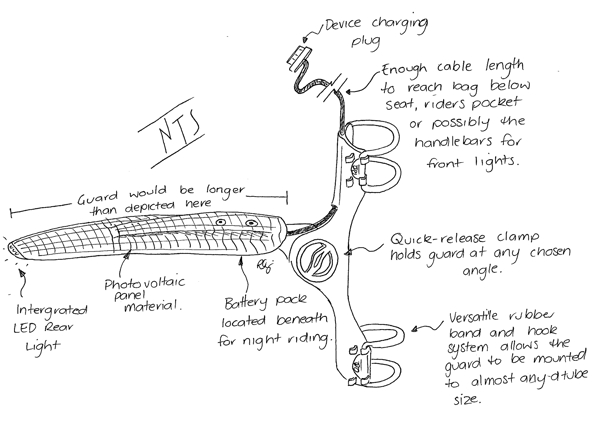 Device charging
plug
Enough cable length
to reach bag below
seat, riders pocket
or possibly the
handlebars for
front lights.
NTS
Guard would be longer
than depicted here
Quick-release clamp
holds guard at any chosen
angle.
Photovoltaic
panel
material.
Intergrated
LED Rear
Light
Battery pack
located beneath
for night riding.
Versatile rubber
band and hook
system allows the
guard to be mounted
to almost any-dtube
size.